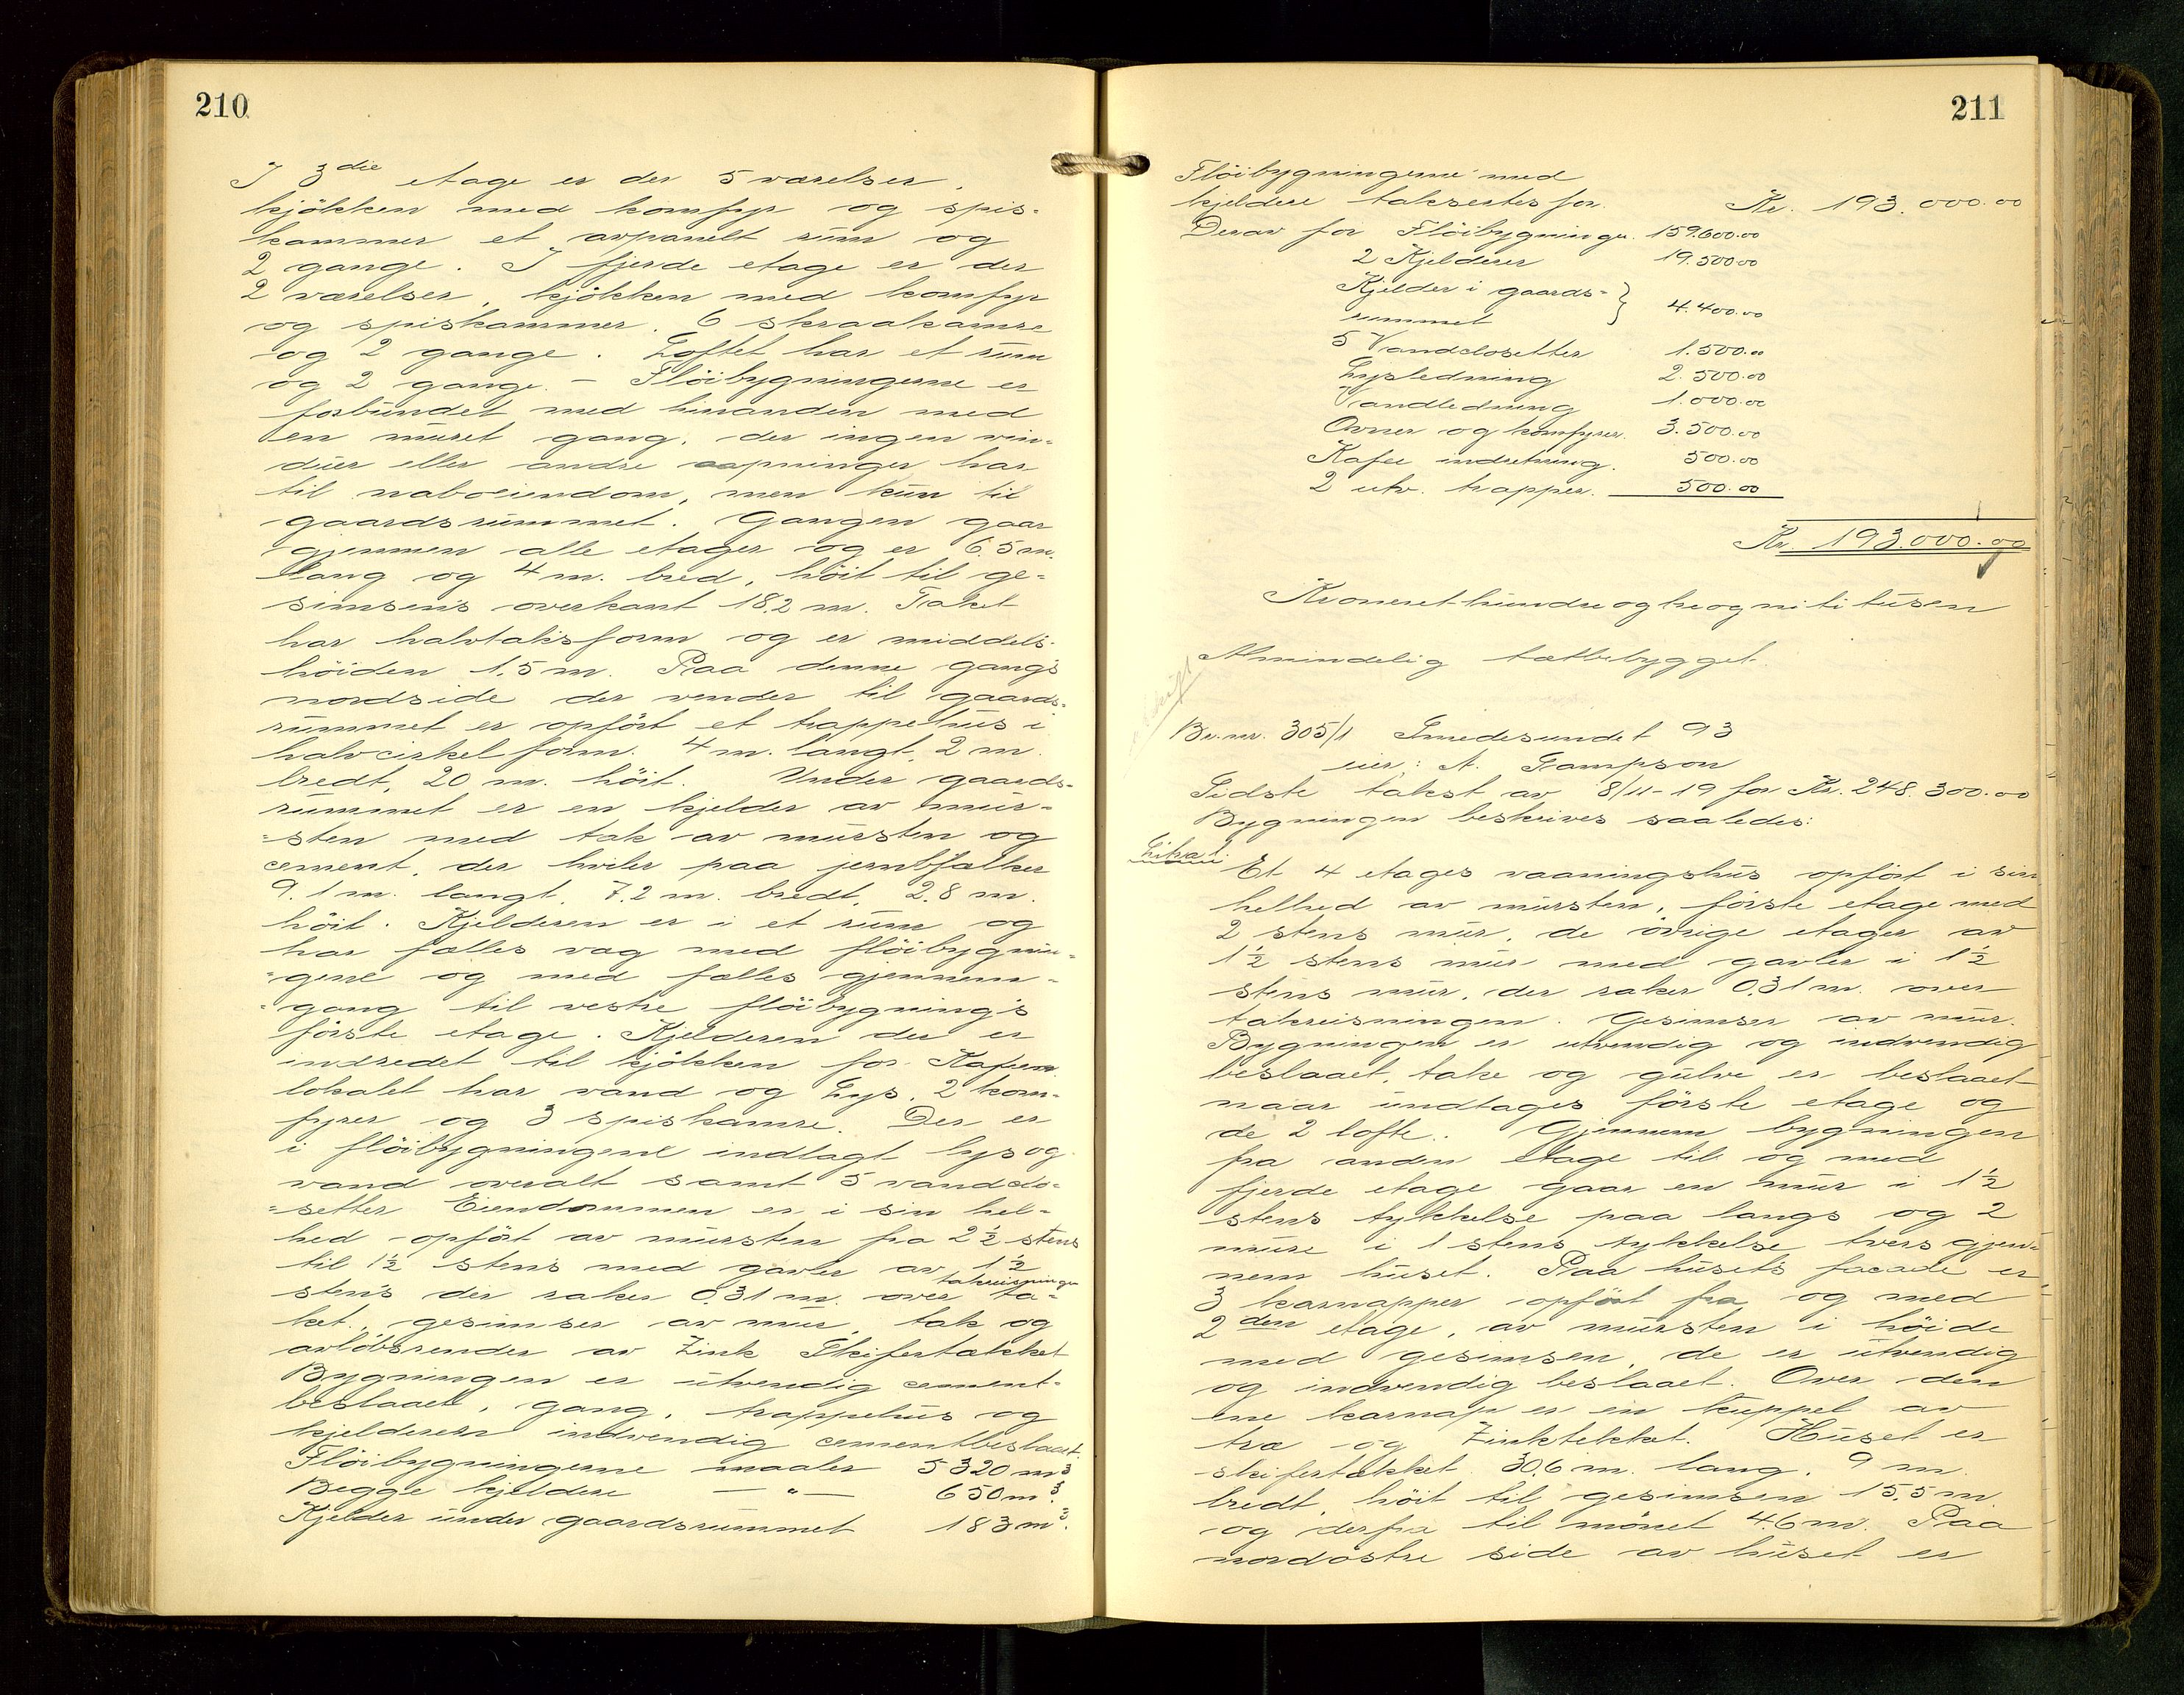 210
I 3die etage er der 5 værelser,
kjökken med komfyr og spis-
kammer et avpanelt rum og
2 gange. I fjerde etage er der
2 værelser, kjökken med komfyr
og spiskammer. 6 skraakamre
og 2 gange. Loftet har et rum
og 2 gange. – Flöibygningerne er
forbundet med hinanden med
en muret gang, der ingen vin-
duer eller andre aapninger har
til naboeiendom, men kun til
gaardsrummet. Gangen gaar
gjennem alle etager og er 6.5 m.
lang og 4 m. bred, höit til ge-
simsens overkant 18.2 m. Taket
har halvtaksform og er middels-
höiden 1.5 m. Paa denne gangs
nordside der vender til gaards-
rummet er opfört et trappehus i
halvcirkelform. 4 m. langt, 2 m.
bredt, 20 m. höit. Under gaards-
rummet er en kjelder av mur-
=sten med tak av mursten og
cement, der hviler paa jernbjælker
9.1 m. langt. 7.2 m. bredt, 2.8 m.
höit. Kjelderen er i et rum og
har fælles væg med flöibygnin-
=gene og med fælles gjennem-
=gang til vestre flöibygning's
förste etage. Kjelderen der er
indredet til kjökken for Kafeen
lokalet har vand og Lys, 2 kom-
fyrer og 3 spiskamre. Der er
i flöibygningene indlagt lys og
vand overalt samt 5 vandclo-
=setter Eiendommen er i sin hel-
hed opfört av mursten fra 2 1/2 stens
til 1 1/2 stens med gavler av 1 1/2
takreisningen
stens der raker 0.31 m. over ta-
ket, gesimser av mur, tak og
avlöbsrender av Zink Skifertækket
Bygningen er utvendig cement-
beslaaet, gang, trappehus og
kjelderen indvendig cementbeslaaet.
Flöibygningerne maaler 5320 m3
Begge kjeldere — " — 650 m3.
Kjelder under gaardsrummet 183 m3.
211
Flöibygningerne med
kjeldere takseres for. Kr. 193.000.00
Derav for Flöibygninger. 159.600.00
2 Kjelderer 19.500.00
Kjelder i gaards- }
rummet 4.400.00
5 Vandclosetter 1.500.00
Lysledning 2.500.00
Vandledning 1.000.00
Ovner og komfyrer. 3.500.00
Kafee indretning. 500.00
2 utv. trapper. 500.00
Kr. 193.000.00
Kroneret-hundreogtreognititusen
Almindelig tætbebygget.
Br. nr. 305/1 Smedesundet 93
eier: A. Sampson
Sidste takst av 8/11-19 for Kr. 248.300.00
Bygningen beskrives saaledes:
Litra 1
Et 4 etages vaaningshus opfört i sin
helhed av mursten, förste etage med
2 stens mur, de övrige etager av
1 1/2 stens mur med gavler i 1 1/2
stens mur, der raker 0.31 m. over
takreisningen. Gesimser av mur.
Bygningen er utvendig og indvendig
beslaaet, take og gulve er beslaaet
naar undtages förste etage og
de 2 lofte. Gjennem bygningen
fra anden etage til og med
fjerde etage gaar en mur i 1 1/2
stens tykkelse paa langs og 2
mure i 1 stens tykkelse tvers gjen-
nem huset. Paa husets facade er
3 karnapper opfört fra og med
2den etage, av mursten i höide
med gesimsen, de er utvendig
og indvendig beslaaet. Over den
ene karnap er en kuppel av
træ og Zinktækket. Huset er
skifertækket 30.6 m. lang. 9 m.
bredt, höit til gesimsen 15.5 m
og derfra til mönet 4.6 m. Paa
nordöstre side av huset er